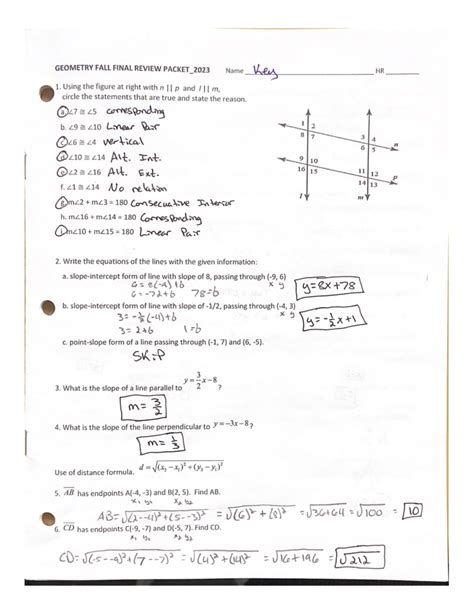 GEOMETRY FALL FINAL REVIEW PACKET_2023 Name Key HR
1. Using the figure at right with n || p and l || m,
circle the statements that are true and state the reason.
a. ∠7 ≅ ∠5 corresponding
b. ∠9 ≅ ∠10 Linear Pair
c. ∠6 ≅ ∠4 vertical
d. ∠10 ≅ ∠14 Alt. Int.
e. ∠2 ≅ ∠16 Alt. Ext.
f. ∠1 ≅ ∠14 No relation
g. m∠2 + m∠3 = 180 Consecutive Interior
h. m∠16 + m∠14 = 180 Corresponding
i. m∠10 + m∠15 = 180 Linear Pair
1 2
8 7
3 4
6 5
n
9 10
16 15
11 12
14 13
p
l m
2. Write the equations of the lines with the given information:
a. slope-intercept form of line with slope of 8, passing through (-9, 6)
x y
6 = 8(-9) + b
6 = -72 + b 78 = b
y = 8x + 78
b. slope-intercept form of line with slope of -1/2, passing through (-4, 3)
x y
3 = -½(-4) + b
3 = 2 + b 1 = b
y = -½x + 1
c. point-slope form of a line passing through (-1, 7) and (6, -5).
Skip
3. What is the slope of a line parallel to y = 3/2 x − 8 ?
m = 3/2
4. What is the slope of the line perpendicular to y = −3x − 8 ?
m = 1/3
Use of distance formula. d = √(x₂ − x₁)² + (y₂ − y₁)²
5. AB has endpoints A(-4, -3) and B(2, 5). Find AB.
x₁ y₁ x₂ y₂
AB = √(2--4)² + (5--3)² = √(6)² + (8)² = √36+64 = √100 = 10
6. CD has endpoints C(-9, -7) and D(-5, 7). Find CD.
x₁ y₁ x₂ y₂
CD = √(-5--9)² + (7--7)² = √(4)² + (14)² = √16+196 = √212